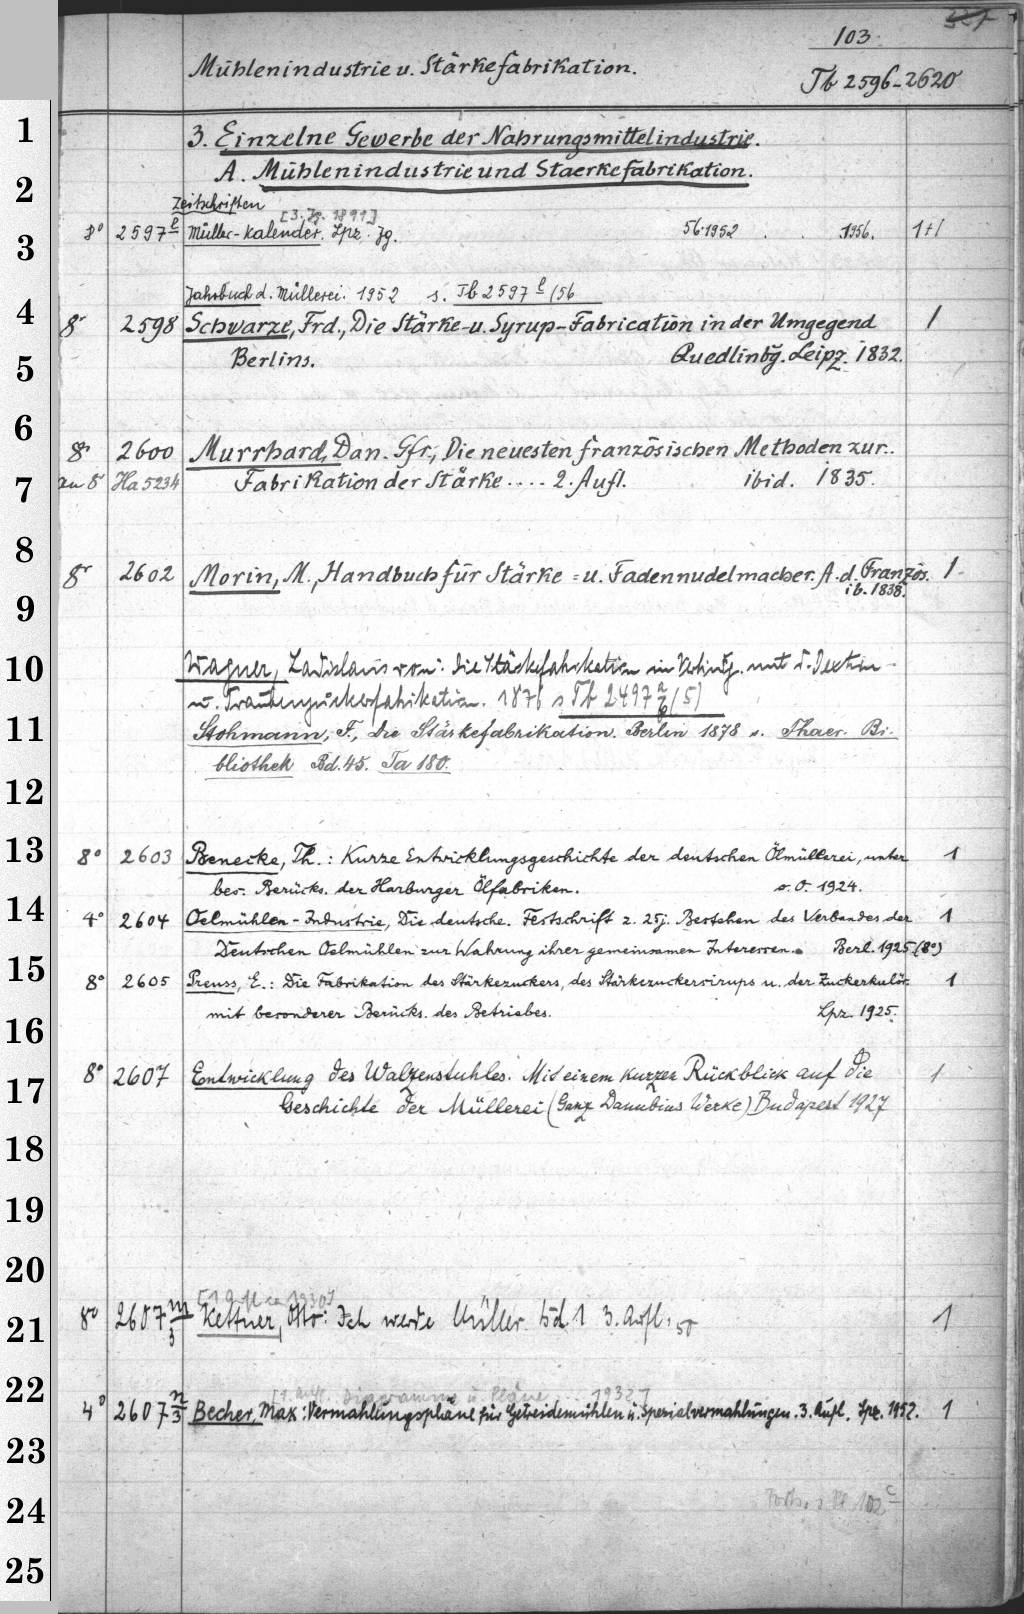 103.
Mühlenindustrie u. Stärkefabrikation.
Tb 2596-2620
1
3. Einzelne Gewerbe der Nahrungsmittelindustrie.
2
A. Mühlenindustrie und Staerkefabrikation.
Zeitschriften
[3. Jg. 1891]
3
8° 2597 l Müller-Kalender. Lpz. Jg. 56.1952 . . 1956. 1+1
Jahrbuch d. Müllerei. 1952 s. Tb 2597 l/56
4
8° 2598 Schwarze, Frd., Die Stärke- u. Syrup-Fabrication in der Umgegend 1
5
Berlins. Quedlinbg. Leipz. 1832.
6
8° 2600 Murrhard, Dan. Gfr., Die neuesten französischen Methoden zur..
7
an 8° Ha 5234 Fabrikation der Stärke .... 2. Aufl. ibid. 1835.
8
8° 2602 Morin, M., Handbuch für Stärke = u. Fadennudelmacher. A. d. Französ. 1
9
ib. 1838.
10
Wagner, Ladislaus von: Die Stärkefabrikation in Verbindg. mit d. Dextrin-
u. Traubenzuckerfabrikation. 1876 s Tb 2497 (5)
11
Stohmann, F., die Stärkefabrikation. Berlin 1878 s. Thaer-Bi-
bliothek Bd. 45. Ta 180.
12
13
8° 2603 Benecke, Th.: Kurze Entwicklungsgeschichte der deutschen Ölmüllerei, unter 1
bes. Berücks. der Harburger Ölfabriken. o. O. 1924.
14
4° 2604 Oelmühlen-Industrie, Die deutsche. Festschrift z. 25j. Bestehen des Verbandes der 1
Deutschen Oelmühlen zur Wahrung ihrer gemeinsamen Interessen. Berl. 1925 (8°)
15
8° 2605 Preuss, E.: Die Fabrikation des Stärkezuckers, des Stärkezuckersirups u. der Zuckerkulör. 1
16
mit besonderer Berücks. des Betriebes. Lpz. 1925.
17
8° 2607 Entwicklung des Walzenstuhles. Mit einem kurzen Rückblick auf die 1
Geschichte der Müllerei (Ganz Danubius Werke) Budapest 1927
18
19
20
[1. Aufl ca 1930]
21
8° 2607 m/3 Kettner, Otto: Ich werde Müller Bd. 1 3. Aufl. 50 1
22
[1. Aufl. Diagramme u. Pläne ... 1932]
4° 2607 n/3 Becher, Max: Vermahlungspläne für Getreidemühlen u. Spezialvermahlungen. 3. Aufl. Lpz. 1952. 1
23
24
102 c
25